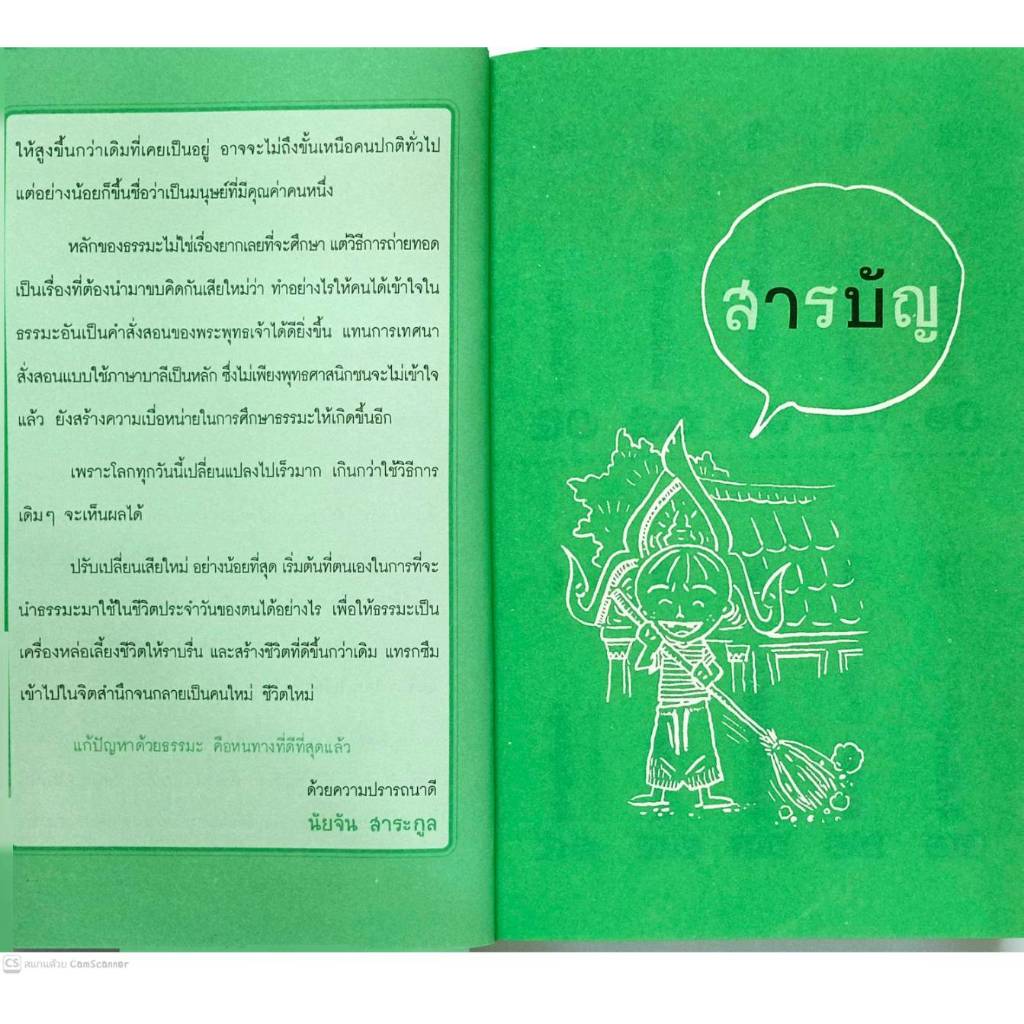 ให้สูงขึ้นกว่าเดิมที่เคยเป็นอยู่ อาจจะไม่ถึงขั้นเหนือคนปกติทั่วไป
แต่อย่างน้อยก็ขึ้นชื่อว่าเป็นมนุษย์ที่มีคุณค่าคนหนึ่ง
หลักของธรรมะไม่ใช่เรื่องยากเลยที่จะศึกษา แต่วิธีการถ่ายทอด
เป็นเรื่องที่ต้องนำมาขบคิดกันเสียใหม่ว่า ทำอย่างไรให้คนได้เข้าใจใน
ธรรมะอันเป็นคำสั่งสอนของพระพุทธเจ้าได้ดียิ่งขึ้น แทนการเทศนา
สั่งสอนแบบใช้ภาษาบาลีเป็นหลัก ซึ่งไม่เพียงพุทธศาสนิกชนจะไม่เข้าใจ
แล้ว ยังสร้างความเบื่อหน่ายในการศึกษาธรรมะให้เกิดขึ้นอีก
เพราะโลกทุกวันนี้เปลี่ยนแปลงไปเร็วมาก เกินกว่าใช้วิธีการ
เดิมๆ จะเห็นผลได้
ปรับเปลี่ยนเสียใหม่ อย่างน้อยที่สุด เริ่มต้นที่ตนเองในการที่จะ
นำธรรมะมาใช้ในชีวิตประจำวันของตนได้อย่างไร เพื่อให้ธรรมะเป็น
เครื่องหล่อเลี้ยงชีวิตให้ราบรื่น และสร้างชีวิตที่ดีขึ้นกว่าเดิม แทรกซึม
เข้าไปในจิตสำนึกจนกลายเป็นคนใหม่ ชีวิตใหม่
แก้ปัญหาด้วยธรรมะ คือหนทางที่ดีที่สุดแล้ว
ด้วยความปรารถนาดี
นัยจัน สาระกูล
สารบัญ
CS สแกนด้วย CamScanner